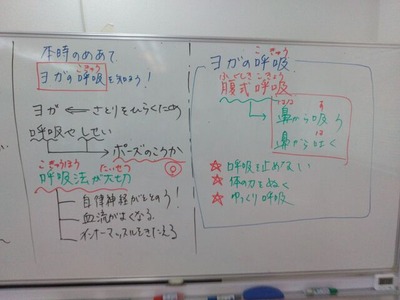 本時のめあて
こきゅう
ヨガの呼吸を知ろう!
ヨガ ⇐ さとりをひらくため
呼吸やしせい
ポーズのこうか
こきゅうほう たいせつ
呼吸法が大切
自律神経がととのう!
血流がよくなる
インナーマッスルをきたえる
こきゅう
ヨガの呼吸
こきゅう
腹式呼吸
鼻から吸う
鼻から吐く
☆呼吸を止めない
☆体の力をぬく
☆ゆっくり呼吸